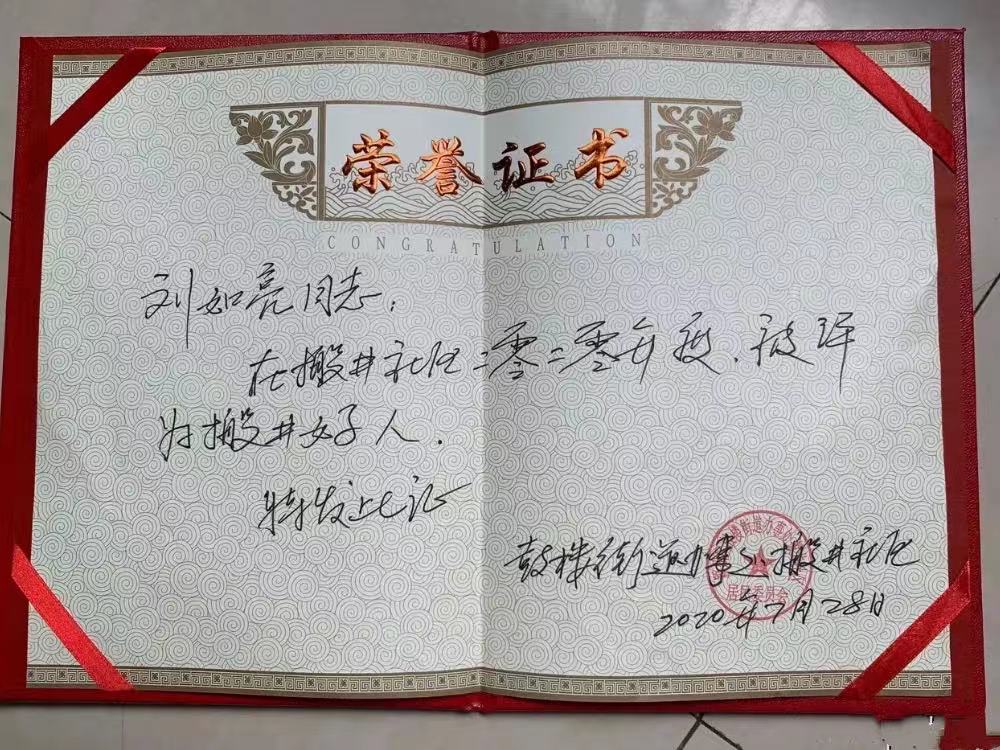 荣誉证书
CONGRATULATION
刘如亮同志：
在搬井社区二零二零年度、被评
为搬井好人.
特发此证
鼓楼街道办事处搬井社区
居民委员会
2020年7月28日